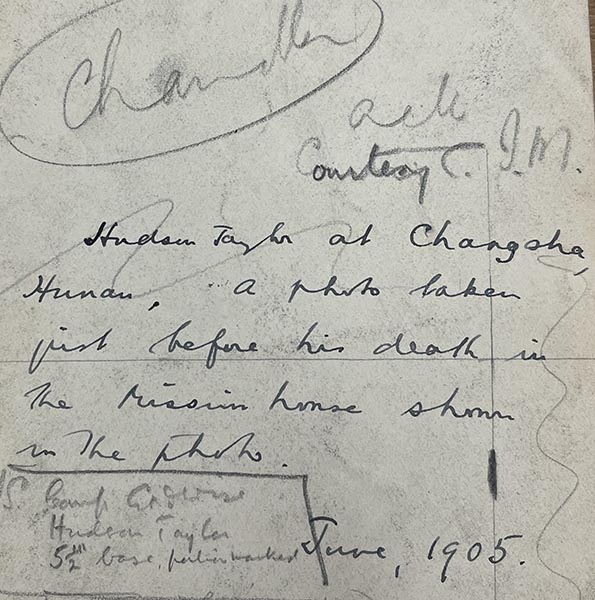 Chandler
ack
Courtesy C. I. M.
Hudson Taylor at Changsha,
Hunan, a photo taken
just before his death in
the Mission house shown
in the photo.
Hudson Taylor
5½" base, portion marked
June, 1905.